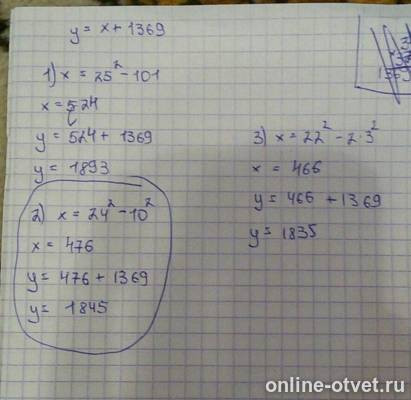 y = x + 1369
1) x = 25² - 101
x = 524
y = 524 + 1369
y = 1893
2) x = 24² - 10²
x = 476
y = 476 + 1369
y = 1845
3) x = 22² - 2·3²
x = 466
y = 466 + 1369
y = 1835
online-otvet.ru